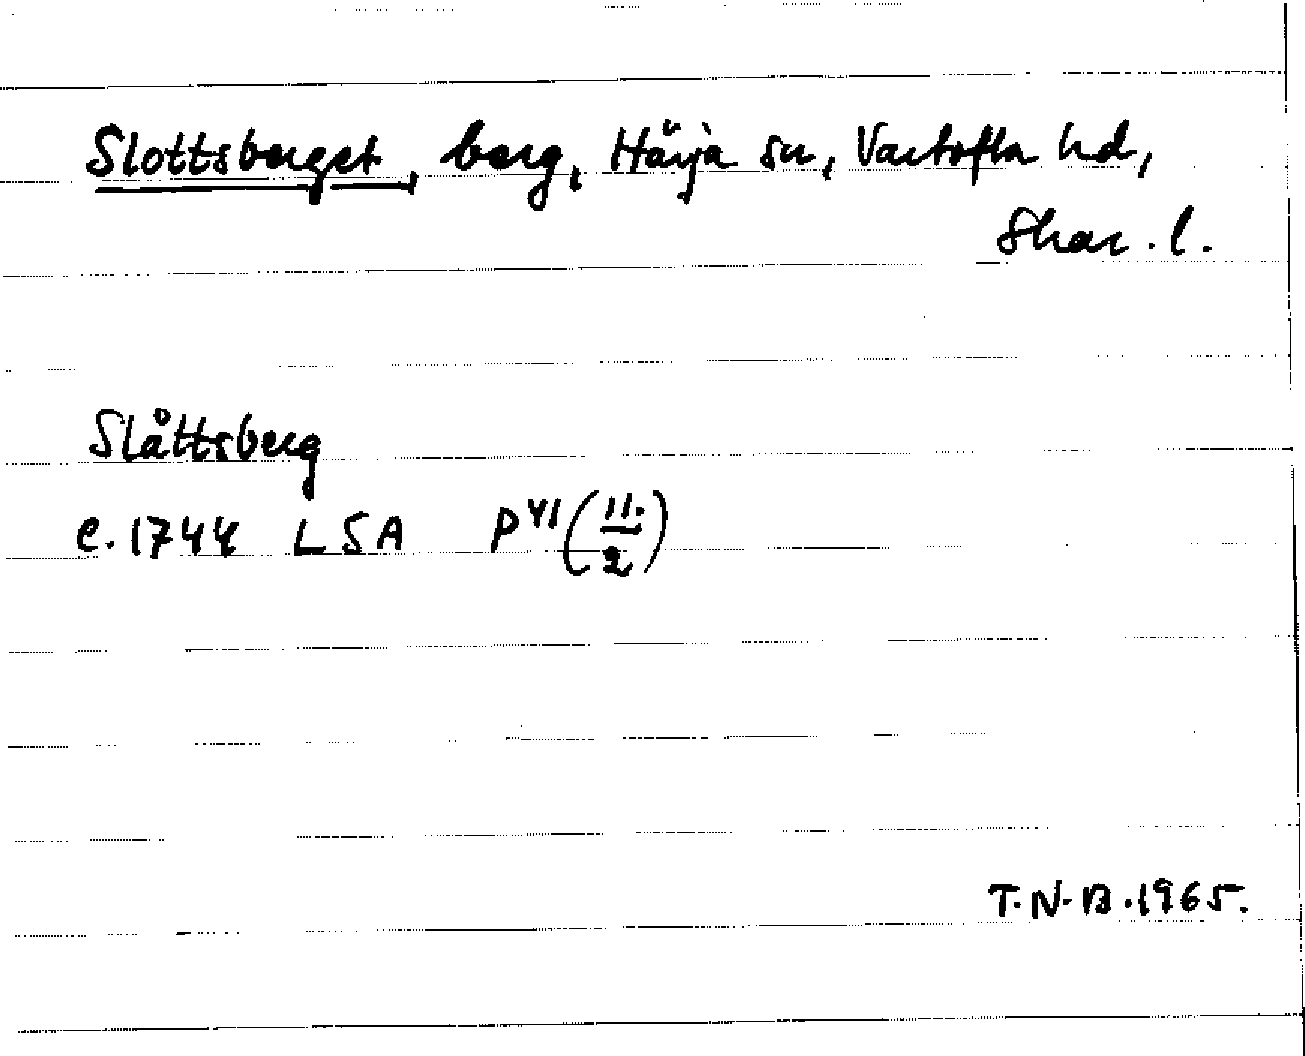 Slottsberget, berg, Härja sn, Vartofta hd,
Skar. l.
Slåttsberg
c. 1744 LSA P 41 (11./2)
T.N.B. 1965.